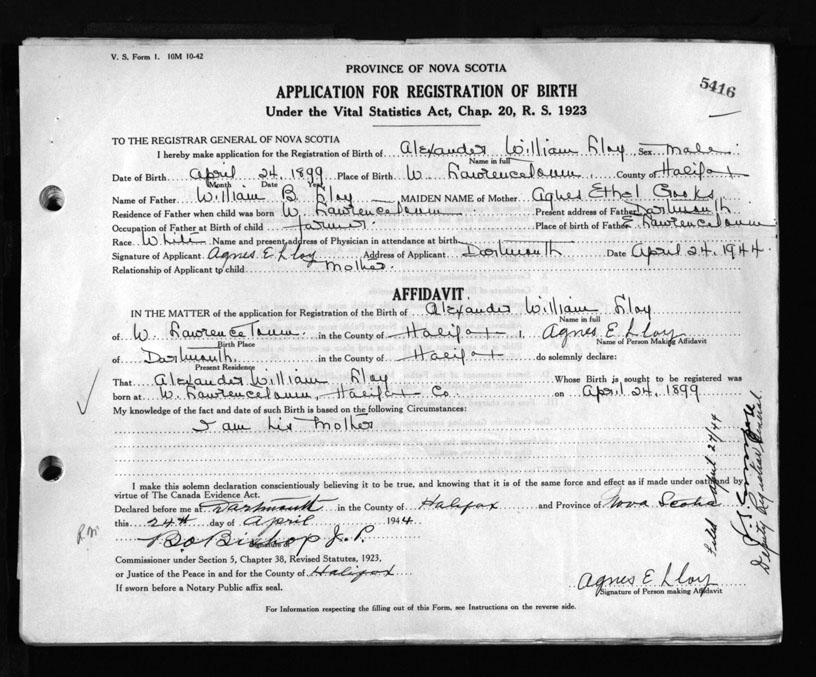 V. S. Form 1. 10M 10-42
PROVINCE OF NOVA SCOTIA
5416
APPLICATION FOR REGISTRATION OF BIRTH
Under the Vital Statistics Act, Chap. 20, R. S. 1923
TO THE REGISTRAR GENERAL OF NOVA SCOTIA
I hereby make application for the Registration of Birth of Alexander William Lloy Sex Male
Name in full
Date of Birth April 24, 1899 Place of Birth W. Lawrencetown, County of Halifax
Month Date Year
Name of Father William B. Lloy MAIDEN NAME of Mother Agnes Ethel Crooks
Residence of Father when child was born W. Lawrencetown Present address of Father Dartmouth
Occupation of Father at Birth of child Farmer Place of birth of Father E. Lawrencetown
Race White Name and present address of Physician in attendance at birth
Signature of Applicant Agnes E Lloy Address of Applicant Dartmouth Date April 24, 1944
Relationship of Applicant to child Mother.
AFFIDAVIT
IN THE MATTER of the application for Registration of the Birth of Alexander William Lloy
Name in full
of W. Lawrencetown in the County of Halifax I, Agnes E Lloy
Birth Place Name of Person Making Affidavit
of Dartmouth in the County of Halifax do solemnly declare:
Present Residence
That Alexander William Lloy Whose Birth is sought to be registered was
born at W. Lawrencetown, Halifax Co. on April 24, 1899
My knowledge of the fact and date of such Birth is based on the following Circumstances:
I am his Mother
I make this solemn declaration conscientiously believing it to be true, and knowing that it is of the same force and effect as if made under oath and by
virtue of The Canada Evidence Act.
Declared before me at Dartmouth in the County of Halifax and Province of Nova Scotia
this 24th day of April 1944
R.M.
B.O. Bishop J.P.
Commissioner under Section 5, Chapter 38, Revised Statutes, 1923,
or Justice of the Peace in and for the County of Halifax
If sworn before a Notary Public affix seal.
Agnes E Lloy
Signature of Person making Affidavit
For Information respecting the filling out of this Form, see Instructions on the reverse side.
Filed April 27/44
Deputy Registrar General.